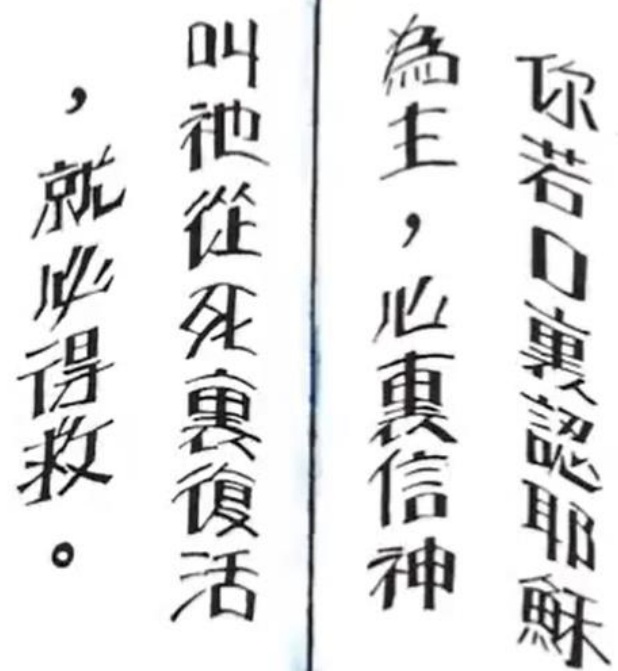 你若口裏認耶穌
為主，心裏信神
叫祂從死裏復活
，就必得救。